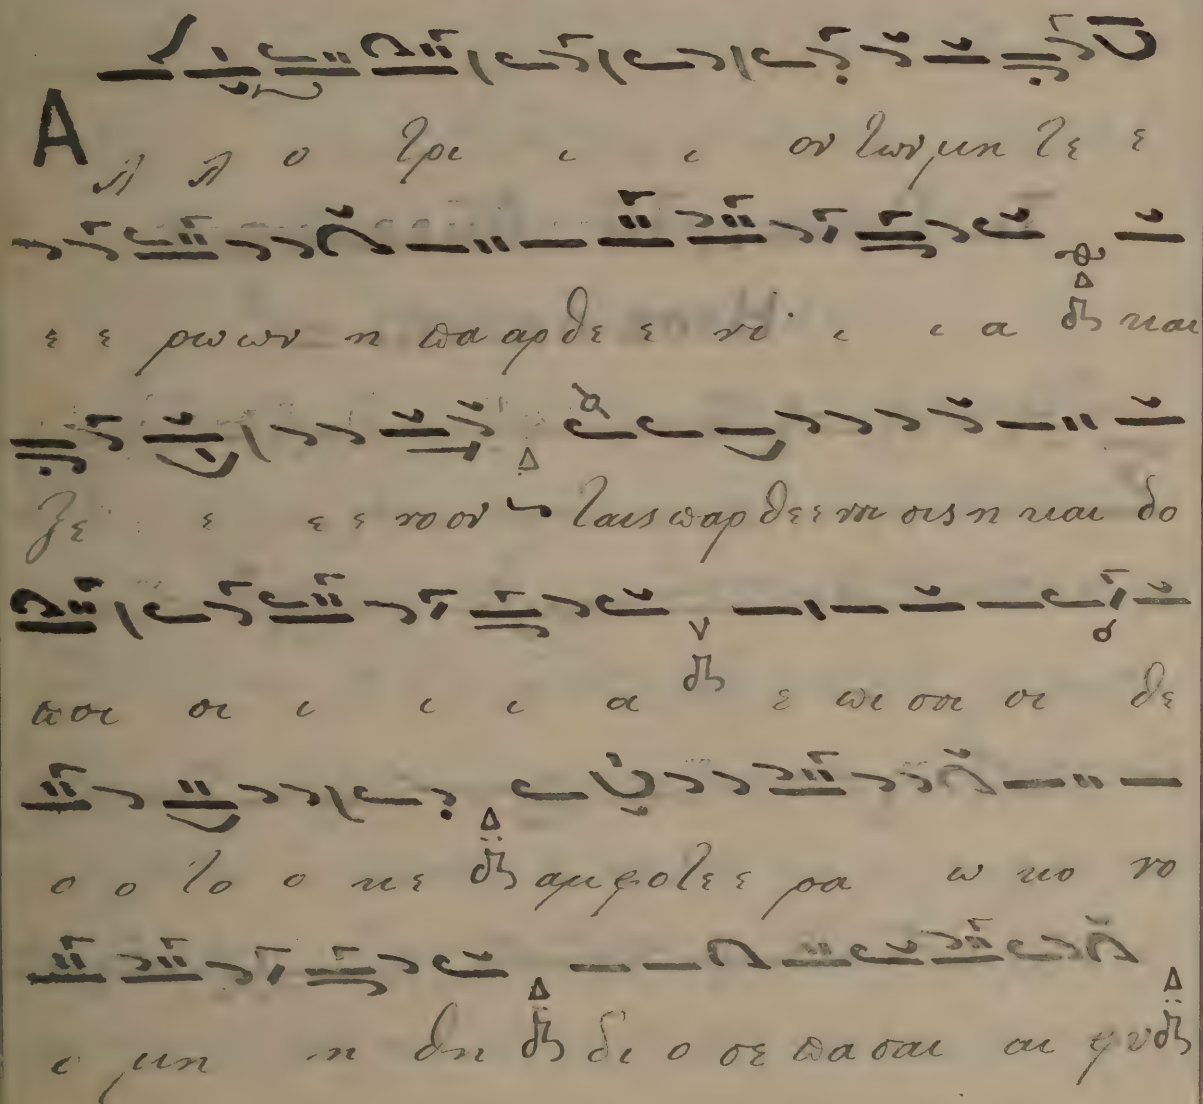 Α λ λ ο τρι ι ι ον των μη τε ε
ε ε ρω ων η πα αρ θε ε νι ι ι α και
ξε ε ε ε νον ταις παρ θε ε νοι οις η και δο
ποι οι ι ι ι α ε πι σοι οι θε
ο ο το ο κε αμφοτε ε ρα ω κο νο
ι μη η θη δι ο σε πα σαι αι φυ